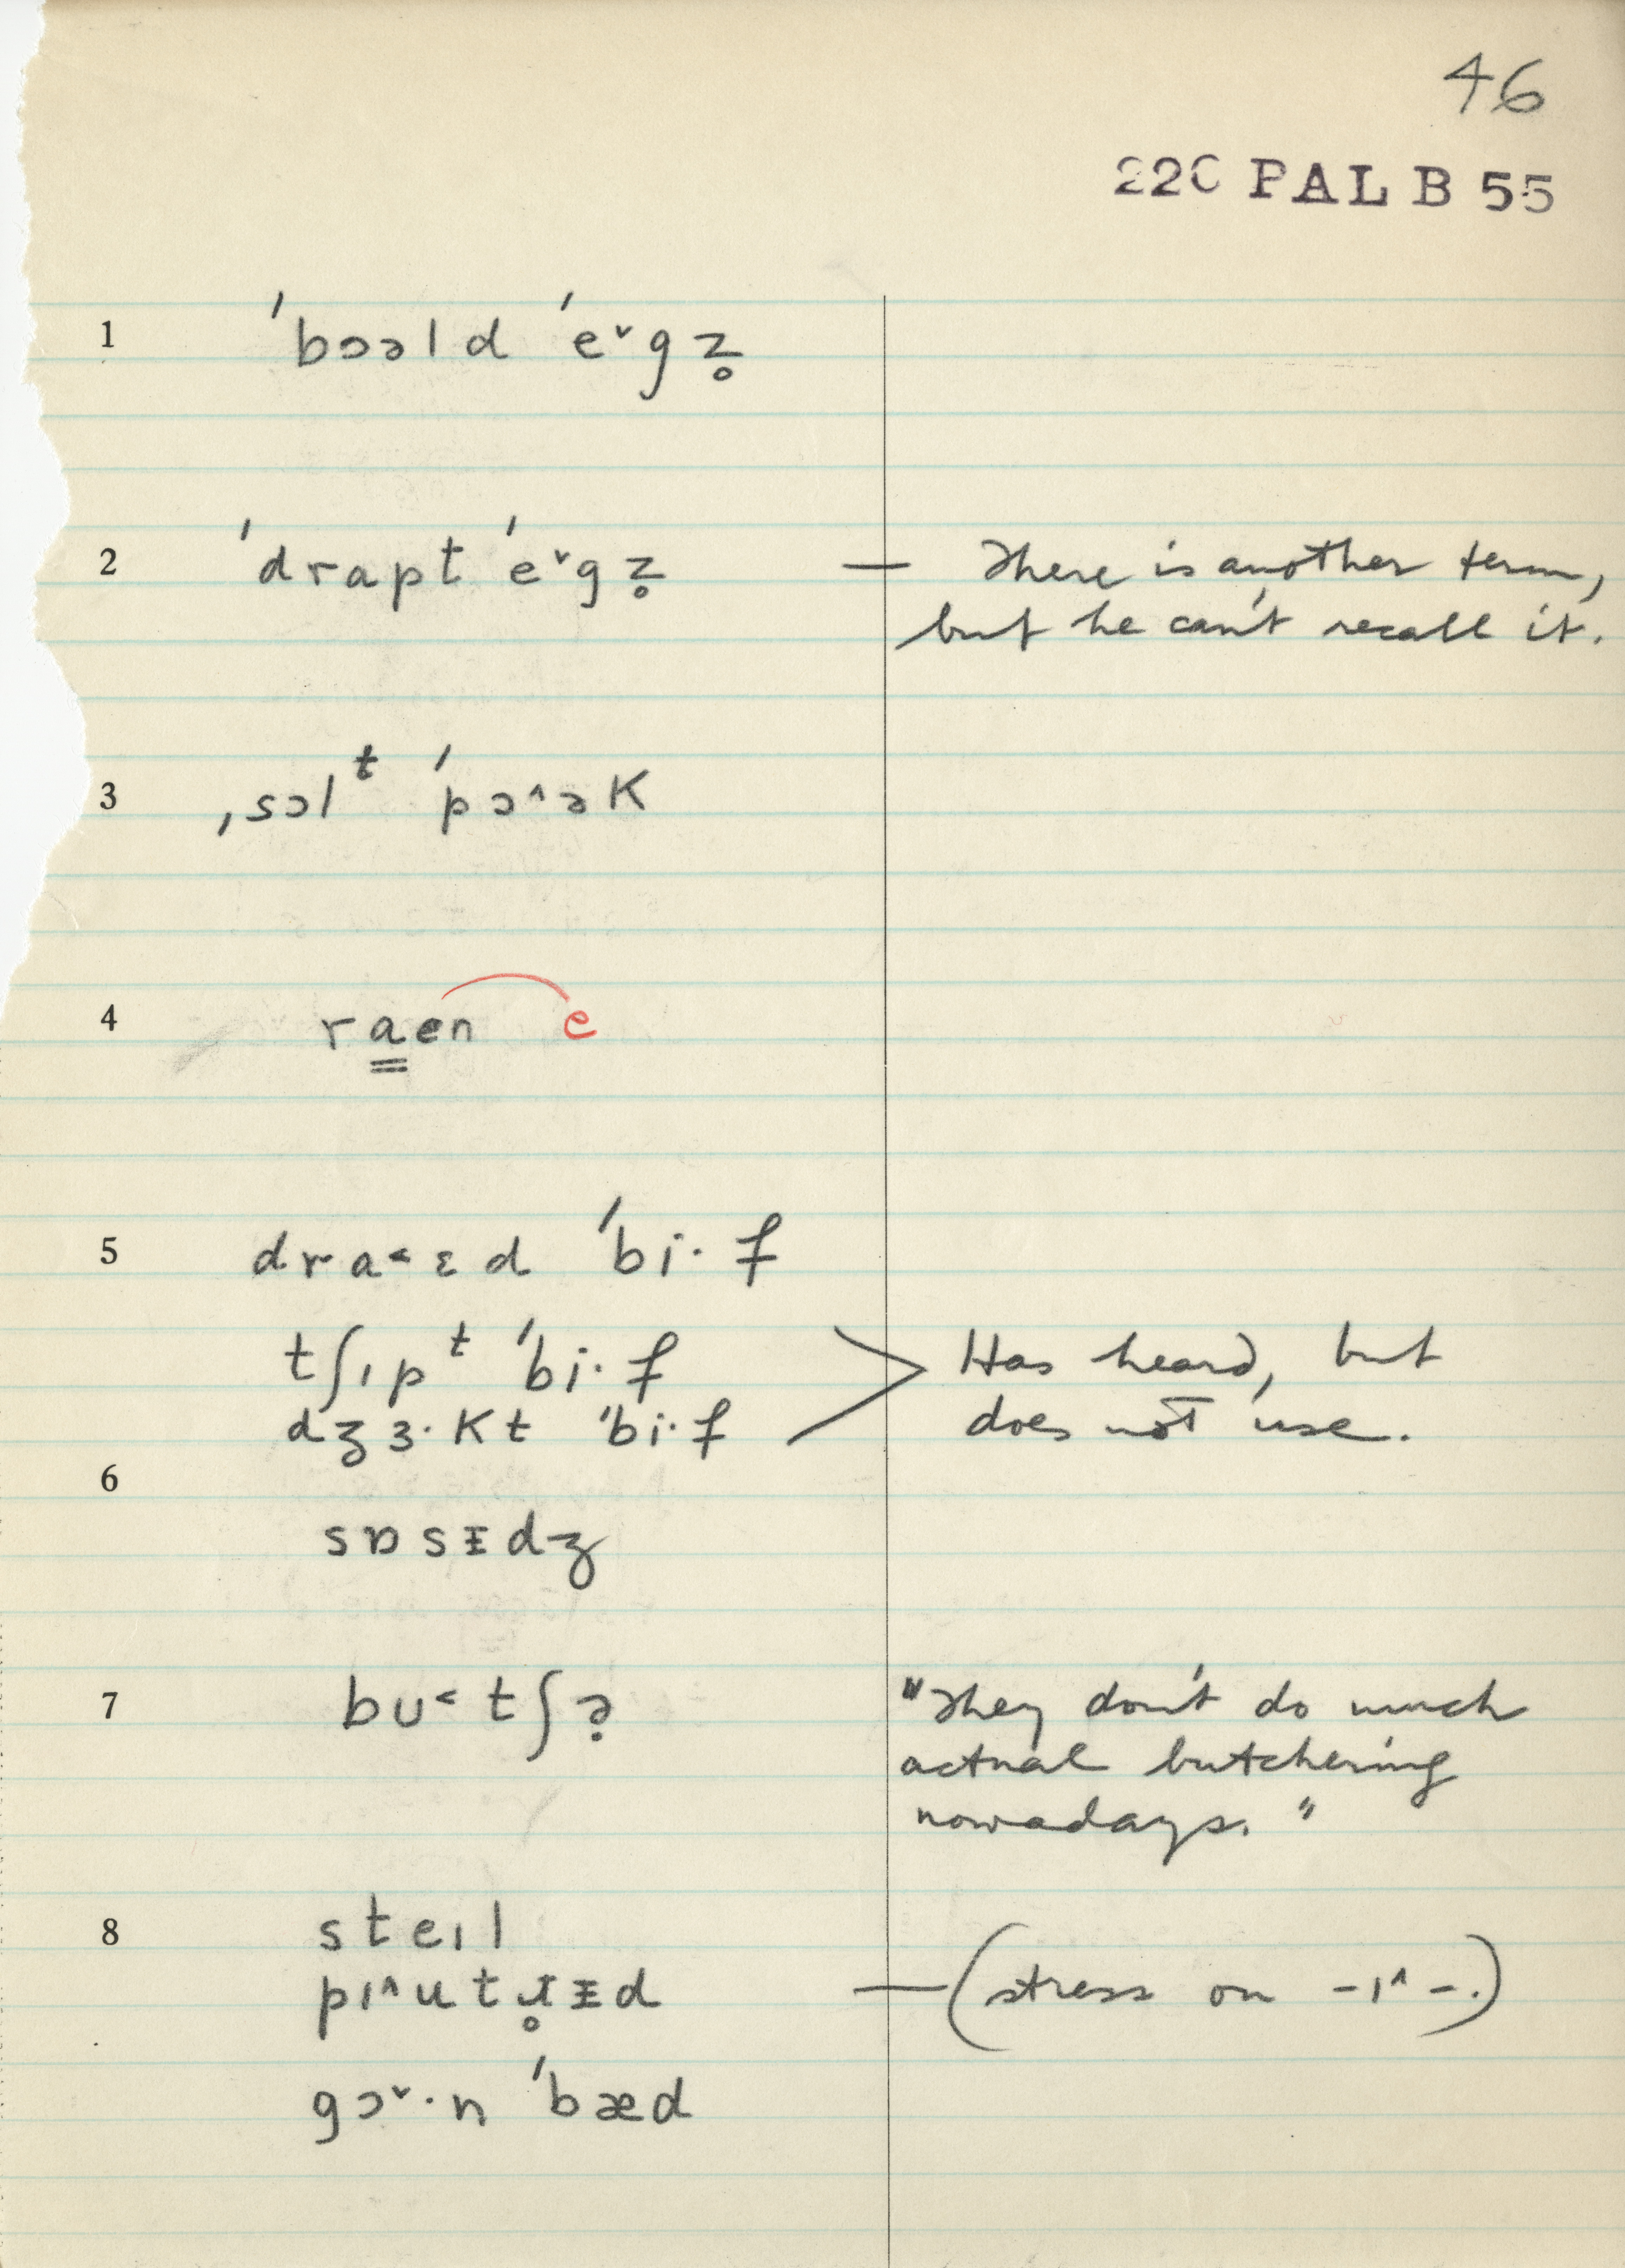 46
22C PAL B 55
1 ˈbɔəld ˈe˅gz̥
2 ˈdrapt ˈe˅gz̥ — There is another term,
but he can't recall it.
3 ˌsɔlᵗ ˈpɔ˄ək
4 ra̳en e
5 dra˂ɛd ˈbi·f
tʃɪpᵗ ˈbi·f > Has heard, but
dʒɜ·kt ˈbi·f does not use.
6
sɒsɪ̵dʒ
7 bʊ˂tʃə̣ "They don't do much
actual butchering
nowadays."
8 steɪl
pɪ˄utɹ̥ɪ̵d — (stress on -ɪ˄-.)
gɔ˅·n ˈbæd